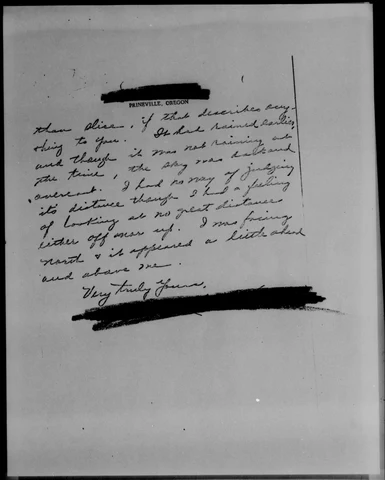 PRINEVILLE, OREGON
than Olive, if that describes any-
thing to you. It had rained earlier,
and though it was not raining at
the time, the sky was dark and
overcast. I had no way of judging
its distance though I had a feeling
of looking at no great distances
either off or up. I was facing
north & it appeared a little ahead
and above me.
Very truly yours,